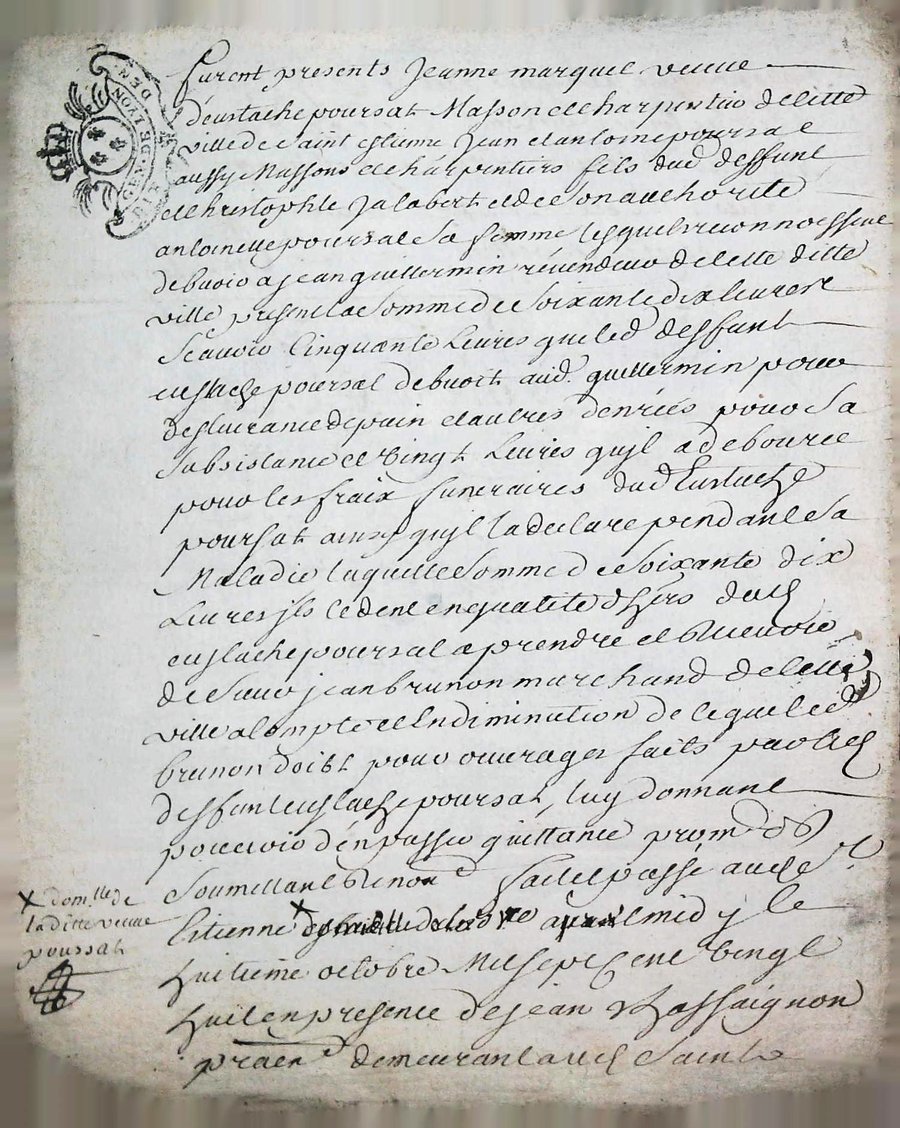 GEN. DE LYON
furent presents Jeanne marquet veuue
d'eustache poursat Masson et charpentier de cette
ville de saint estienne Jean et antoine poursat
aussy Massons et charpentiers fils dud deffunt
et christophle Jalabert et de son authorité
antoinette poursat sa femme lesquels reconnoissent
debuoir a jean guillermin révendeur de cette ditte
ville present la somme de soixante dix leures
scauoir Cinquante Leures que led deffunt
eustache poursat debuoit aud. guillermin pour
desliurance de pain et autres denrées pour sa
subsistance et vingt Leures qu'jl a debourcé
pour les fraix funeraires dud Eustache
poursat ainsy qu'jl la declaré pendant sa
Maladie laquelle somme de soixante dix
Leures jls cedent en qualité d'hers dud
eustache poursat a prendre et Receuoir
de sieur jean brunon marchand de cette
ville a compte et En diminution de ce que led
brunon doibt pour ouurages faits par led
deffunt eustache poursat, luy donnant
pouuoir d'en passer quittance prom
soumettant Renon fait et passé aud St
Etienne apres midy le
huitieme octobre Mil sept Cent vingt
huit en presence de jean Chassaignon
pratn demeurant aud Saint
x dom.lle de
laditte veuue
poursat